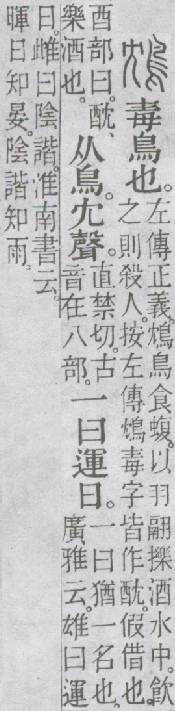 鴆毒鳥也。左傳正義。鴆鳥食蝮。以羽翮擽酒水中。飲之則殺人。按左傳鴆毒字皆作酖。假借也。
酉部曰。酖、樂酒也。从鳥。冘聲。直禁切。古音在八部。一曰運日。一曰猶一名也。廣雅云。雄曰運
日。雌曰陰諧。淮南書云。暉日知晏。陰諧知雨。